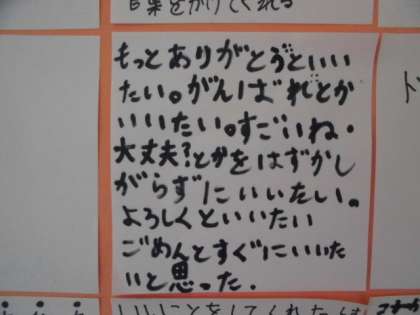 言葉をかけてくれる
もっとありがとうといい
たい。がんばれとか
いいたい。すごいね・
大丈夫?とかをはずかし
がらずにいいたい。
よろしくといいたい
ごめんとすぐにいいた
いと思った.
いいことをしてくれた